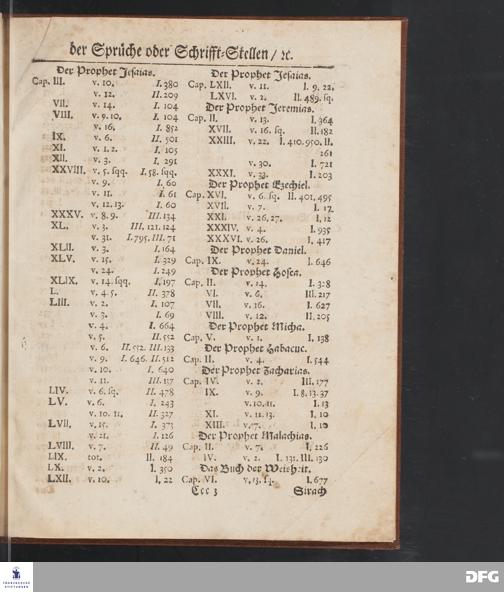 der Sprüche oder Schrifft-Stellen / ꝛc.
Der Prophet Jesaias.
Cap. III. v. 10. I. 380
v. 12. II. 209
VII. v. 14. I. 104
VIII. v. 9. 10. I. 104
v. 16. I. 852
IX. v. 6. II. 501
XI. v. 1. 2. I. 105
XII. v. 3. I. 291
XXVIII. v. 5. sqq. I. 58. sqq.
v. 9. I. 60
v. 11. I. 61
v. 12. 13. I. 60
XXXV. v. 8. 9. III. 134
XL. v. 3. III. 121. 124
v. 31. I. 795. III. 71
XLII. v. 3. I, 164
XLV. v. 15. I. 329
v. 24. I. 249
XLIX. v. 14. sqq. I, 197
L. v. 4. 5. II. 378
LIII. v. 2. I. 107
v. 3. I. 69
v. 4. I. 664
v. 5. II. 552
v. 6. II. 552. III. 133
v. 9. I. 646. III. 512
v. 10. I. 640
v. 11. III. 117
LIV. v. 6. sq. II. 478
LV. v. 6. I. 243
v. 10. 11. II. 327
LVII. v. 15. I. 373
v. 21. I. 126
LVIII. v. 7. II. 49
LIX. tot. II. 184
LX. v. 2. I. 350
LXII. v. 10. I, 22
Der Prophet Jesaias.
Cap. LXII. v. 11. I. 9. 22.
LXVI. v. 2. II. 489. sq.
Der Prophet Jeremias.
Cap. II. v. 13. I. 364
XVII. v. 16. sq. II. 182
XXIII. v. 22. I. 410. 950. II.
261
v. 30. I. 721
XXXI. v. 33. I. 203
Der Prophet Ezechiel.
Cap. XVI. v. 6. sq. II. 401. 495
XVII. v. 7. I. 17
XXI. v. 26. 27. I, 12
XXXIV. v. 4. I. 935
XXXVI. v. 26. I. 417
Der Prophet Daniel.
Cap. IX. v. 24. I. 646
Der Prophet Hosea.
Cap. II. v. 14. I. 328
VI. v. 6. III. 217
VII. v. 16. I. 627
VIII. v. 12. II. 205
Der Prophet Micha.
Cap. V. v. 1. I. 138
Der Prophet Habacuc.
Cap. II. v. 4. I. 544
Der Prophet Zacharias.
Cap. IV. v. 2. III. 177
IX. v. 9. I. 8. 13. 37
v. 10. 11. I. 13
XI. v. 12. 13. I, 10
XIII. v. 7. I. 10
Der Prophet Malachias.
Cap. II. v. 7. I, 226
IV. v. 2. I. 131. III. 130
Das Buch der Weisheit.
Cap. VI. v. 13. sq. I. 677
Ccc 3 Sirach
FRANCKESCHE STIFTUNGEN
DFG